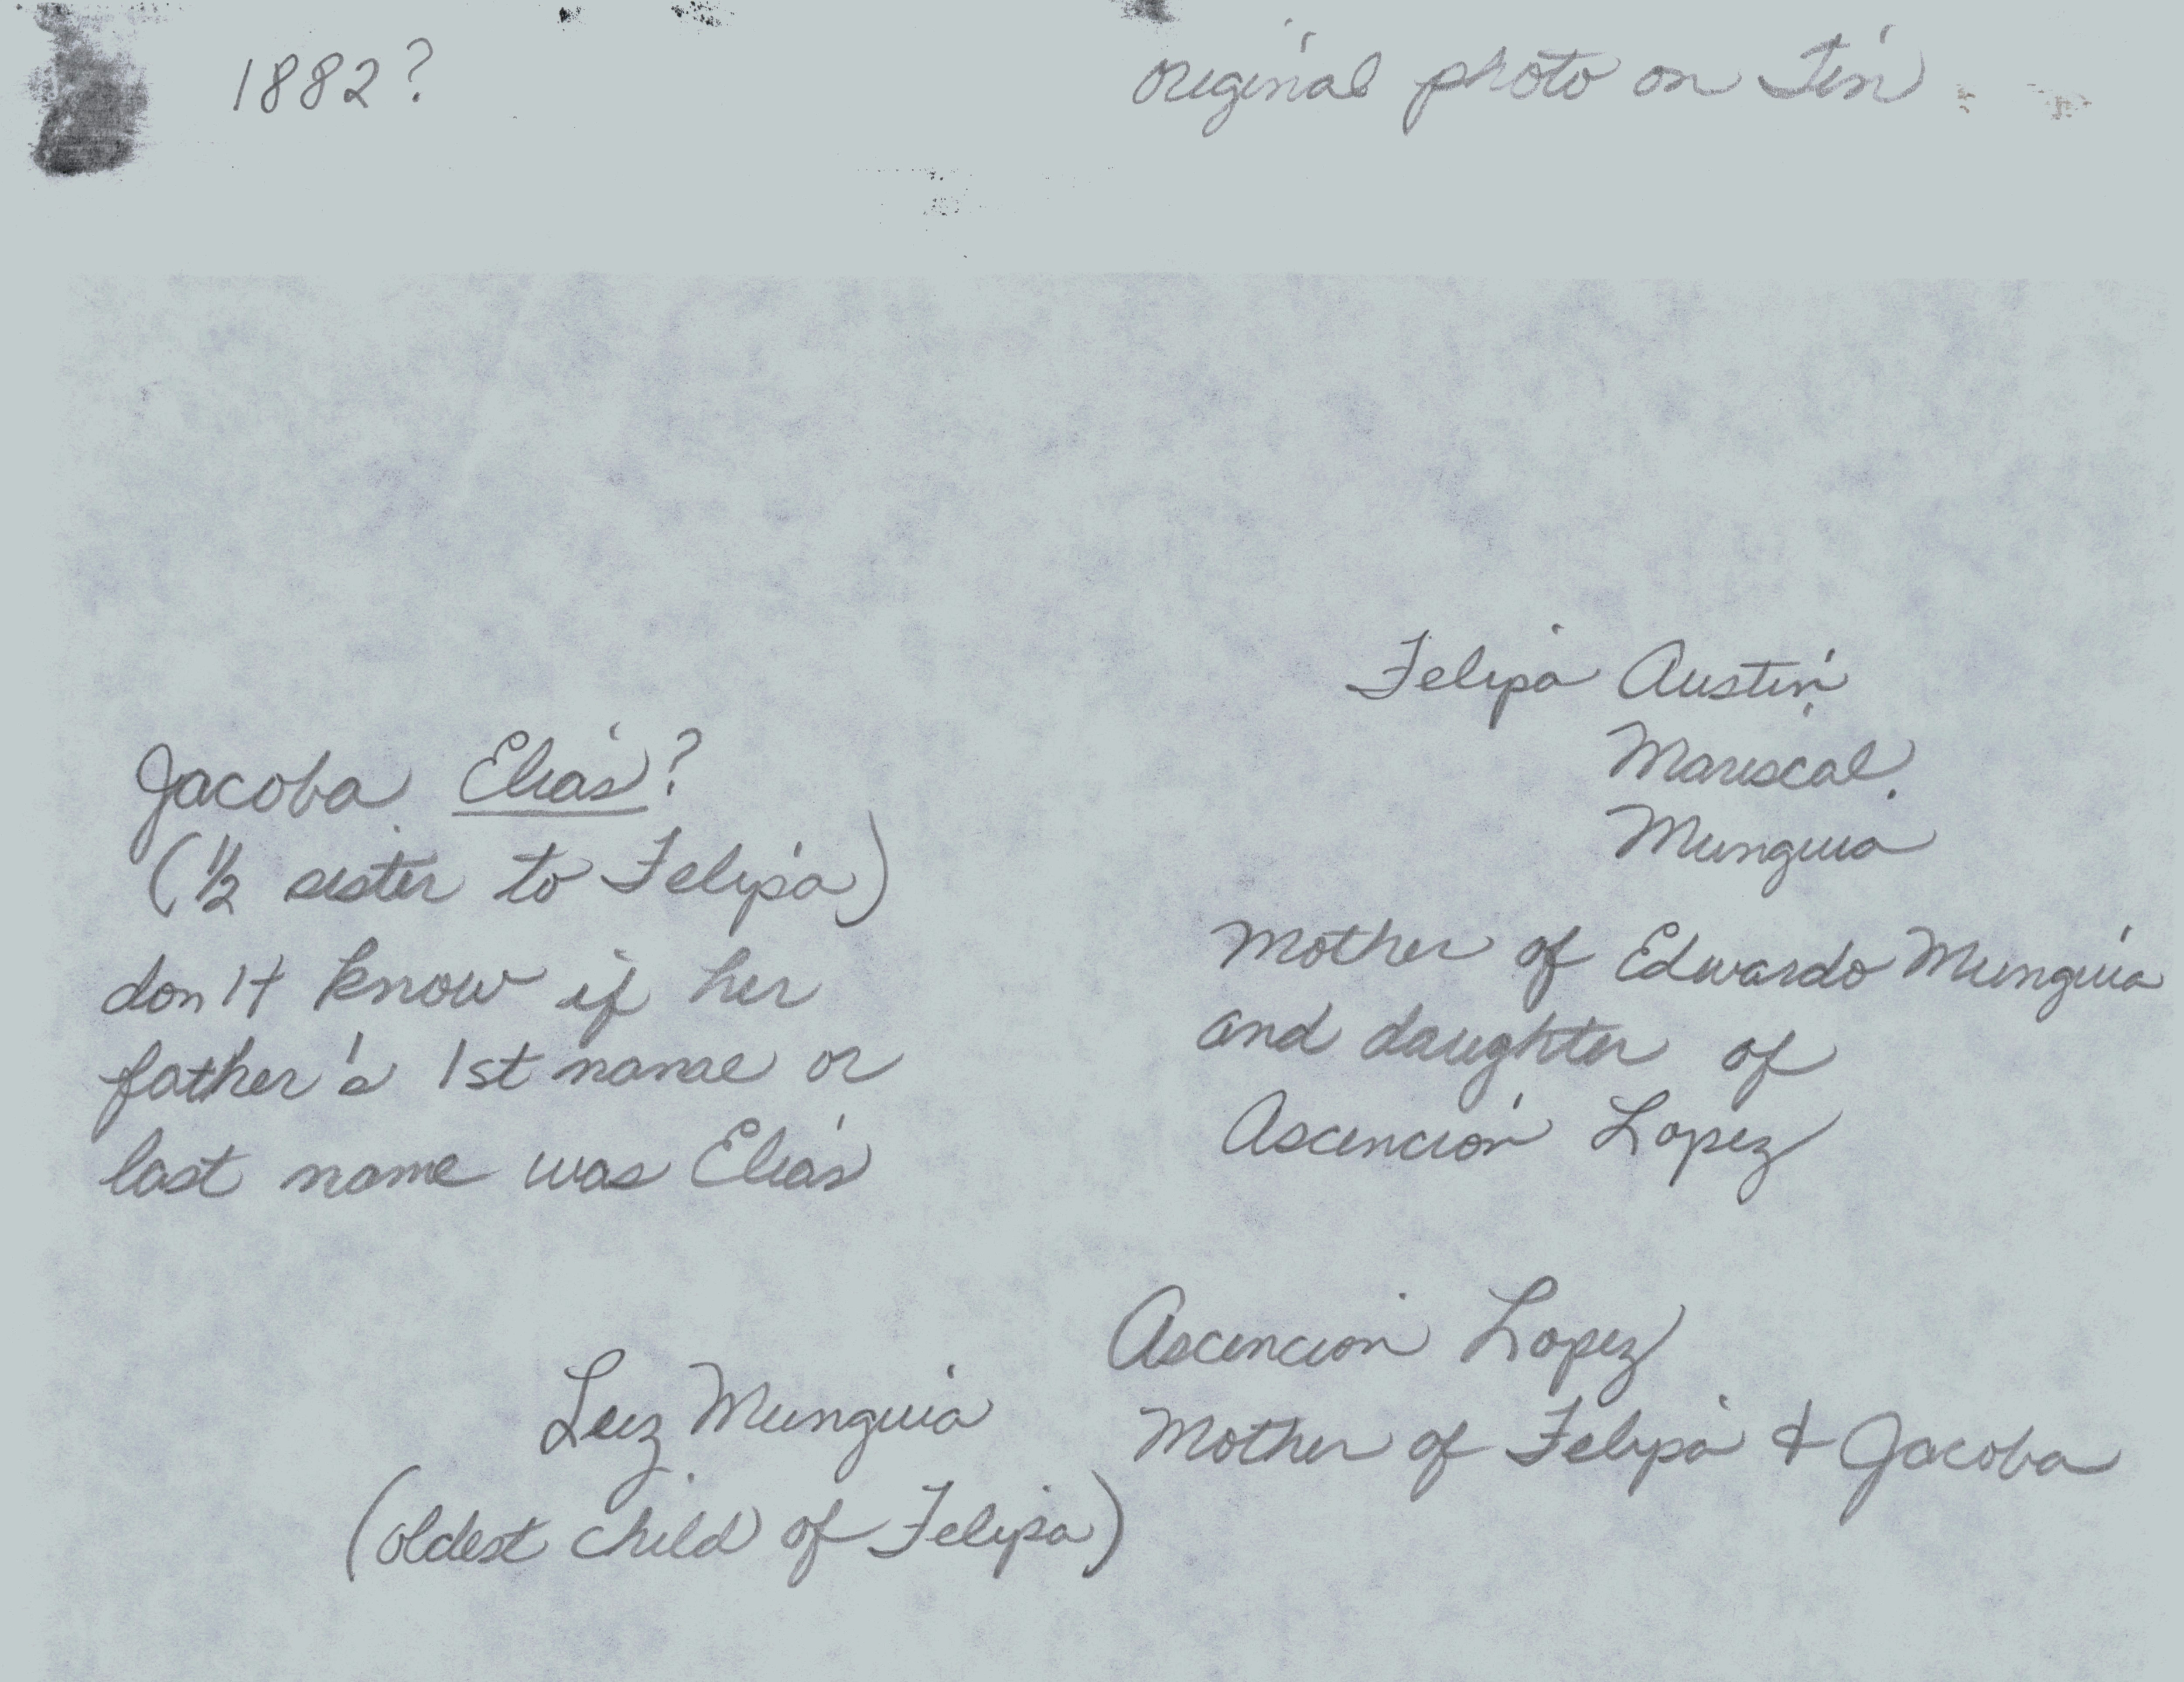 1882?
original photo on Tin
Felipa Austin
Mariscal
Munguia
Mother of Edwardo Munguia
and daughter of
Ascencion Lopez
Jacoba Elias?
(1/2 sister to Felipa)
don't know if her
father's 1st name or
last name was Elias
Luz Munguia
(oldest child of Felipa)
Ascencion Lopez
Mother of Felipa & Jacoba